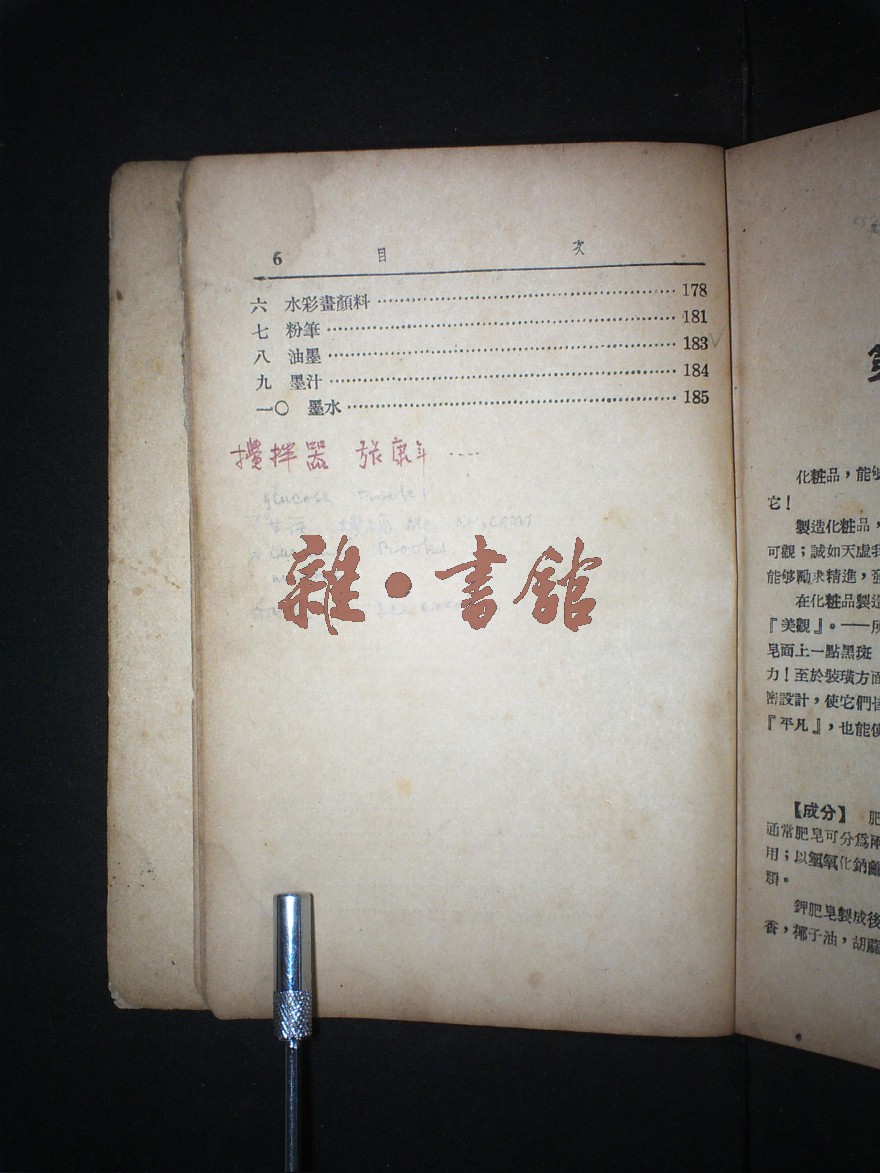 6 目 次
六 水彩畫顏料 178
七 粉筆 181
八 油墨 183
九 墨汁 184
一〇 墨水 185
攪拌器 張康年 ....
glucose
雜·書館
化粧品,能
它!
製造化粧品,
可觀;誠如天虛我
能夠勵求精進,
在化粧品製造
『美觀』。——所
皂面上一點黑斑
力!至於裝璜方面
密設計,使它們
『平凡』,也能使
【成分】 肥
通常肥皂可分爲兩
用;以氫氧化鈉
類。
鉀肥皂製成後
香,椰子油,胡